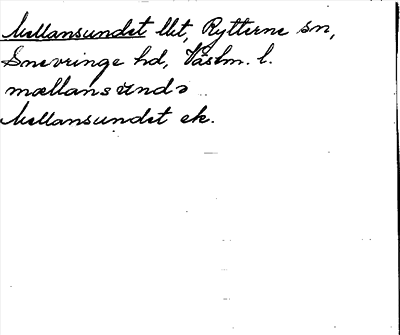 Mellansundet llt, Rytterne sn,
Snevringe hd, Västm. l.
mællansúndə
Mellansundet ek.